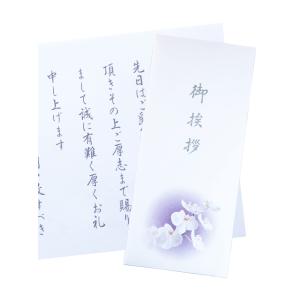 御挨拶
先日はご
頂きその上ご厚志まで賜り
まして誠に有難く厚くお礼
申し上げます
すべき